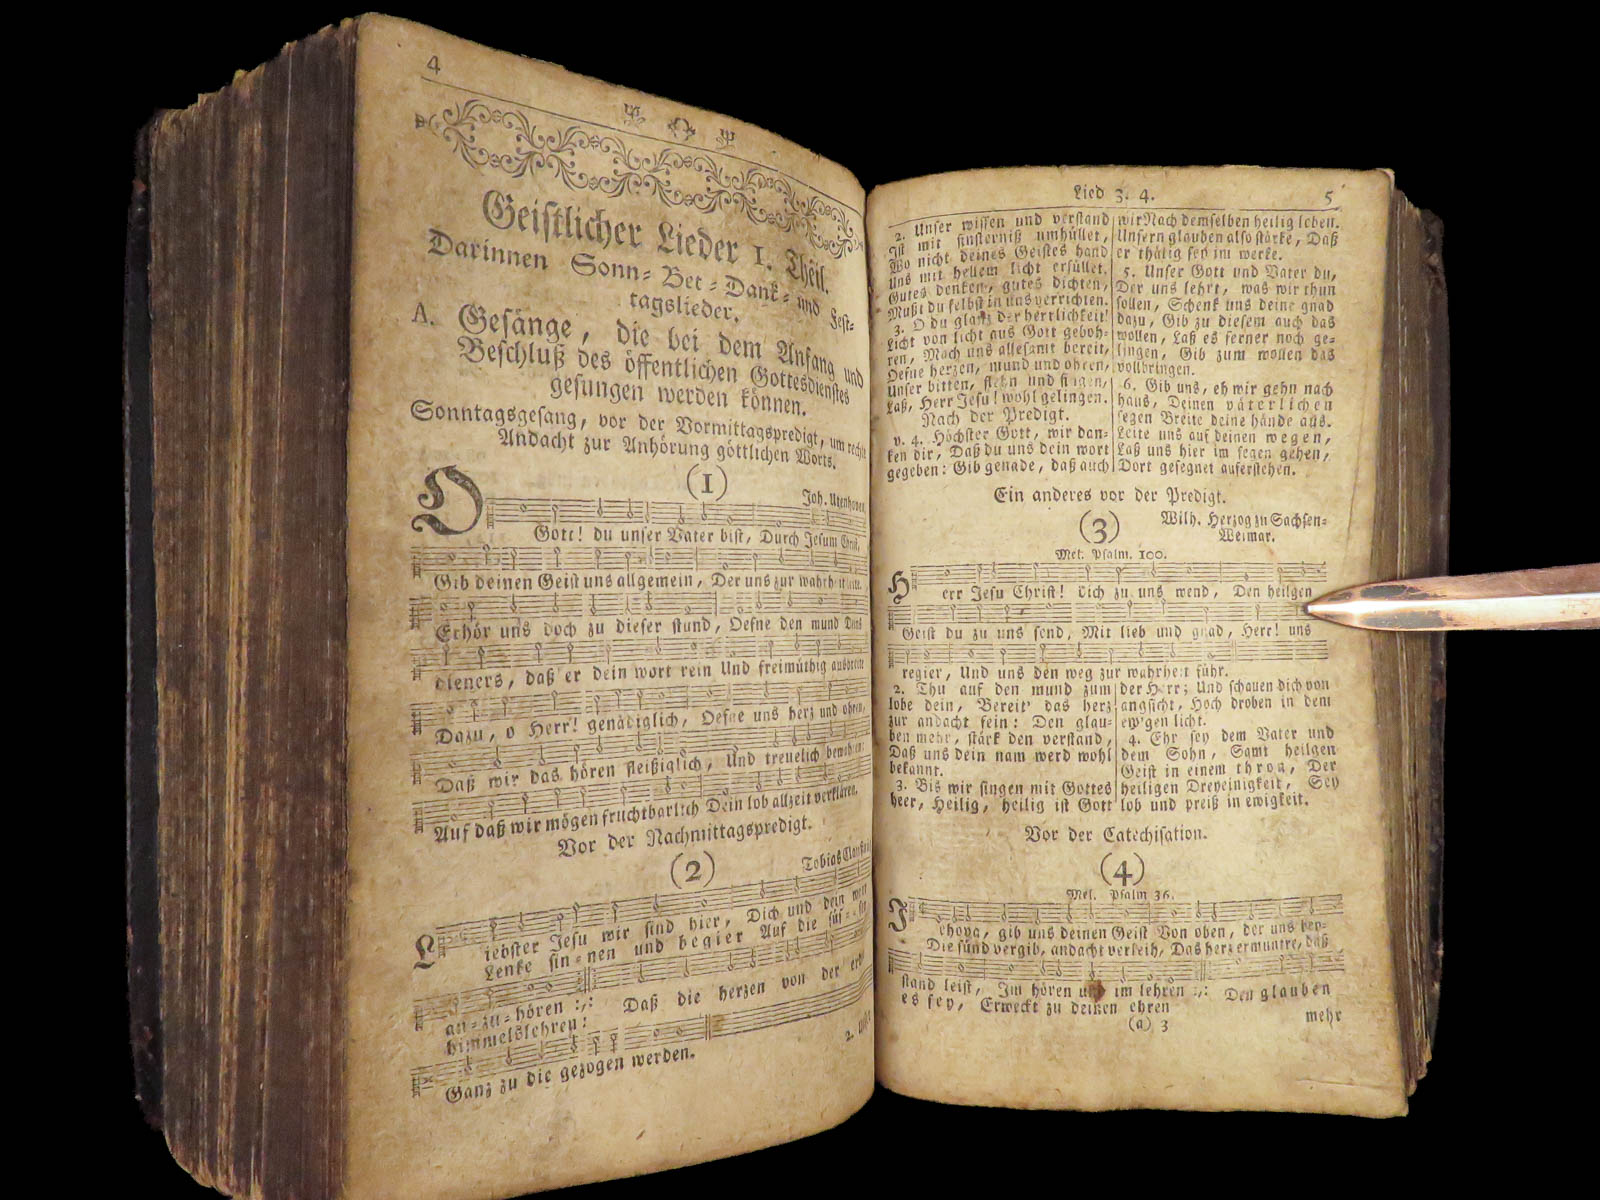 4
Geistlicher Lieder I. Theil.
Darinnen Sonn- Bet- Dank- und Fest-
tagslieder.
A. Gesänge, die bei dem Anfang und
Beschluß des öffentlichen Gottesdienstes
gesungen werden können.
Sonntagsgesang, vor der Vormittagspredigt, um rechte
Andacht zur Anhörung göttlichen Worts.
(1)
Joh. Utenhoven.
O Gott! du unser Vater bist, Durch Jesum Christ,
Gib deinen Geist uns allgemein, Der uns zur wahrheit leite.
Erhör uns doch zu dieser stund, Oefne den mund Deins
dieners, daß er dein wort rein Und freimüthig ausbreite
Dazu, o Herr! genädiglich, Oefne uns herz und ohren,
Daß wir das hören fleißiglich, Und treuelich bewahren:
Auf daß wir mögen fruchtbarlich Dein lob allzeit verklären.
Vor der Nachmittagspredigt.
(2)
Tobias
Liebster Jesu wir sind hier, Dich und dein wort
Lenke sin-nen und begier Auf die süs-sen
an-zu-hören :,: Daß die herzen von der erd
himmelslehren:
Ganz zu dir gezogen werden.
2.
Lied 3. 4.
5
2. Unser wissen und verstand
Ist mit finsterniß umhüllet,
Wo nicht deines Geistes hand
Uns mit hellem licht erfüllet.
Gutes denken, gutes dichten,
Mußt du selbst in uns verrichten.
3. O du glanz der herrlichkeit!
Licht von licht aus Gott geboh-
ren, Mach uns allesamt bereit,
Oefne herzen, mund und ohren,
Unser bitten, flehn und singen,
Laß, Herr Jesu! wohl gelingen.
Nach der Predigt.
v. 4. Höchster Gott, wir dan-
ken dir, Daß du uns dein wort
gegeben: Gib genade, daß auch
wir Nach demselben heilig leben.
Unsern glauben also stärke, Daß
er thätig sey im werke.
5. Unser Gott und Vater du,
Der uns lehrt, was wir thun
sollen, Schenk uns deine gnad
dazu, Gib zu diesem auch das
wollen, Laß es ferner noch ge-
lingen, Gib zum wollen das
vollbringen.
6. Gib uns, eh wir gehn nach
haus, Deinen väterlichen
segen Breite deine hände aus.
Leite uns auf deinen wegen,
Laß uns hier im segen gehen,
Dort gesegnet auferstehen.
Ein anderes vor der Predigt.
(3)
Wilh. Herzog zu Sachsen-
Weimar.
Mel. Psalm. 100.
Herr Jesu Christ! dich zu uns wend, Den heilgen
Geist du zu uns send, Mit lieb und gnad, Herr! uns
regier, Und uns den weg zur wahrheit führ.
2. Thu auf den mund zum
lobe dein, Bereit das herz
zur andacht fein: Den glau-
ben mehr, stärk den verstand,
Daß uns dein nam werd wohl
bekannt.
3. Bis wir singen mit Gottes
heer, Heilig, heilig ist Gott
der Herr; Und schauen dich von
angsicht, Hoch droben in dem
ewgen licht.
4. Ehr sey dem Vater und
dem Sohn, Samt heilgen
Geist in einem thron, Der
heiligen Dreyeinigkeit, Sey
lob und preiß in ewigkeit.
Vor der Catechisation.
(4)
Mel. Psalm 36.
Jehova, gib uns deinen Geist Von oben, der uns bey-
Die sünd vergib, andacht verleih, Das herz ermuntre, daß
stand leist, Im hören und im lehren :,: Den glauben
es sey, Erweckt zu deinen ehren
(a) 3
mehr